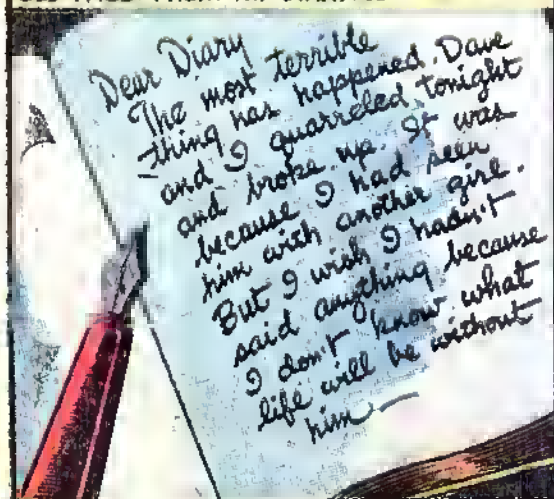 Dear Diary
The most terrible
thing has happened. Dave
and I quarreled tonight
and broke up. It was
because I had seen
him with another girl.
But I wish I hadn't
said anything because
I don't know what
life will be without
him —